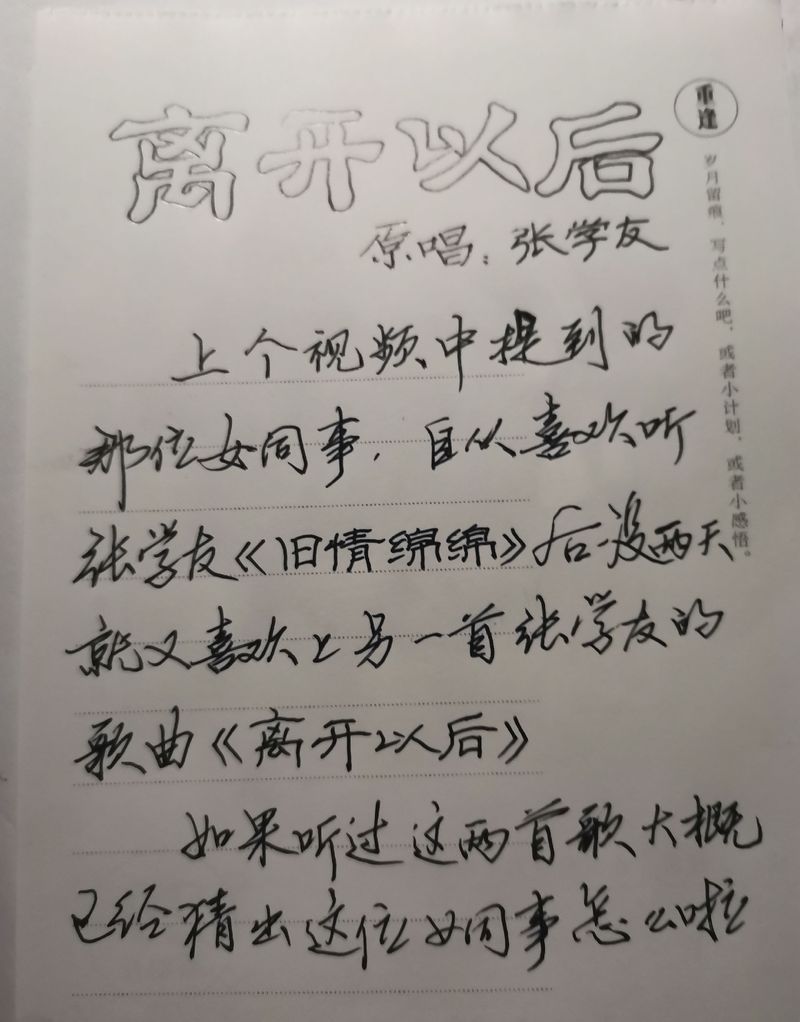 离开以后
原唱：张学友
上个视频中提到的
那位女同事，自从喜欢听
张学友《旧情绵绵》后没两天
就又喜欢上另一首张学友的
歌曲《离开以后》
如果听过这两首歌大概
已经猜出这位女同事怎么啦
重逢
岁月留痕，写点什么吧，或者小计划，或者小感悟。